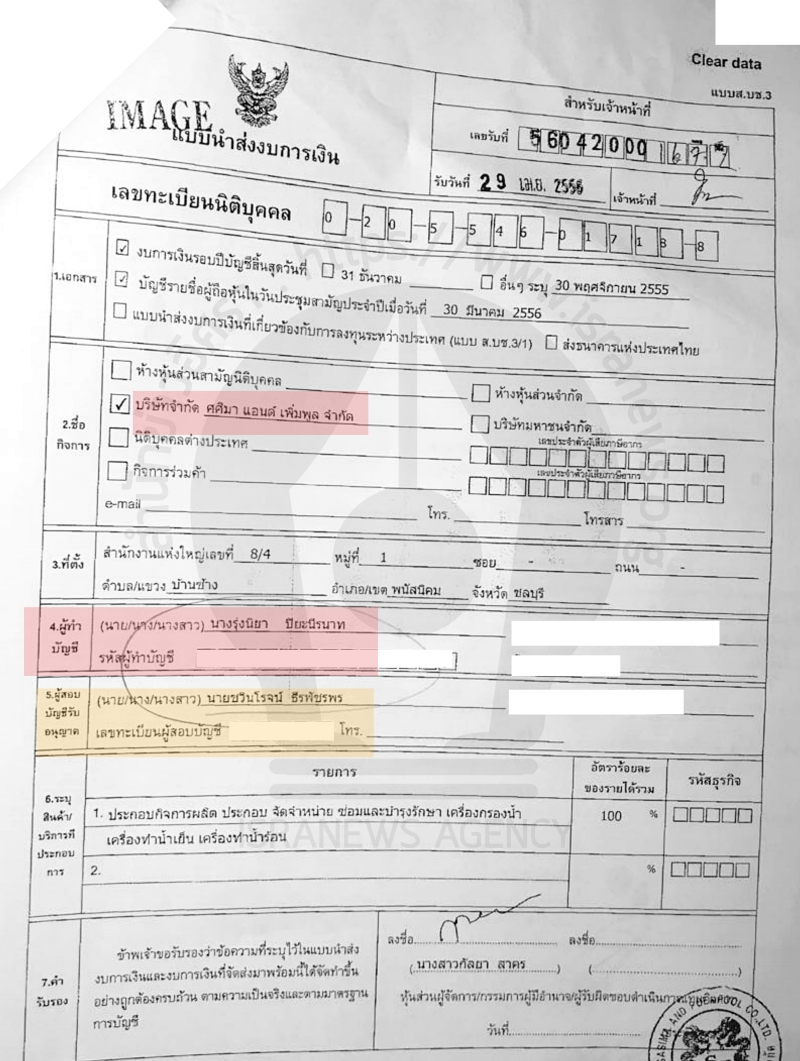 Clear data
แบบส.บช.3
IMAGE
แบบนำส่งงบการเงิน
สำหรับเจ้าหน้าที่
เลขรับที่ 56042000
รับวันที่ 29 เม.ย. 2556 เจ้าหน้าที่
เลขทะเบียนนิติบุคคล 0-20-5-546-01718-8
1.เอกสาร
☑ งบการเงินรอบปีบัญชีสิ้นสุดวันที่ ☐ 31 ธันวาคม ☐ อื่นๆ ระบุ 30 พฤศจิกายน 2555
☑ บัญชีรายชื่อผู้ถือหุ้นในวันประชุมสามัญประจำปีเมื่อวันที่ 30 มีนาคม 2556
☐ แบบนำส่งงบการเงินที่เกี่ยวข้องกับการลงทุนระหว่างประเทศ (แบบ ส.บช.3/1) ☐ ส่งธนาคารแห่งประเทศไทย
2.ชื่อ
กิจการ
☐ ห้างหุ้นส่วนสามัญนิติบุคคล ☐ ห้างหุ้นส่วนจำกัด
☑ บริษัทจำกัด ศศิมา แอนด์ เพิ่มพูล จำกัด ☐ บริษัทมหาชนจำกัด
☐ นิติบุคคลต่างประเทศ เลขประจำตัวผู้เสียภาษีอากร
☐ กิจการร่วมค้า เลขประจำตัวผู้เสียภาษีอากร
e-mail โทร. โทรสาร
3.ที่ตั้ง
สำนักงานแห่งใหญ่เลขที่ 8/4 หมู่ที่ 1 ซอย - ถนน -
ตำบล/แขวง บ้านช้าง อำเภอ/เขต พนัสนิคม จังหวัด ชลบุรี
4.ผู้ทำ
บัญชี
(นาย/นาง/นางสาว) นางรุ่งนิยา ปิยะนีรนาท
รหัสผู้ทำบัญชี
5.ผู้สอบ
บัญชีรับ
อนุญาต
(นาย/นาง/นางสาว) นายชวินโรจน์ ธีรพัชรพร
เลขทะเบียนผู้สอบบัญชี โทร.
รายการ
อัตราร้อยละ
ของรายได้รวม
รหัสธุรกิจ
6.ระบุ
สินค้า/
บริการที่
ประกอบ
การ
1. ประกอบกิจการผลิต ประกอบ จัดจำหน่าย ซ่อมและบำรุงรักษา เครื่องกรองน้ำ 100 %
เครื่องทำน้ำเย็น เครื่องทำน้ำร้อน
2. %
7.คำ
รับรอง
ข้าพเจ้าขอรับรองว่าข้อความที่ระบุไว้ในแบบนำส่ง
งบการเงินและงบการเงินที่จัดส่งมาพร้อมนี้ได้จัดทำขึ้น
อย่างถูกต้องครบถ้วน ตามความเป็นจริงและตามมาตรฐาน
การบัญชี
ลงชื่อ ลงชื่อ
(นางสาวกัลยา สาคร) ( )
หุ้นส่วนผู้จัดการ/กรรมการผู้มีอำนาจ/ผู้รับผิดชอบดำเนินการ
วันที่
ISRANEWS AGENCY
https://www.isranews.org